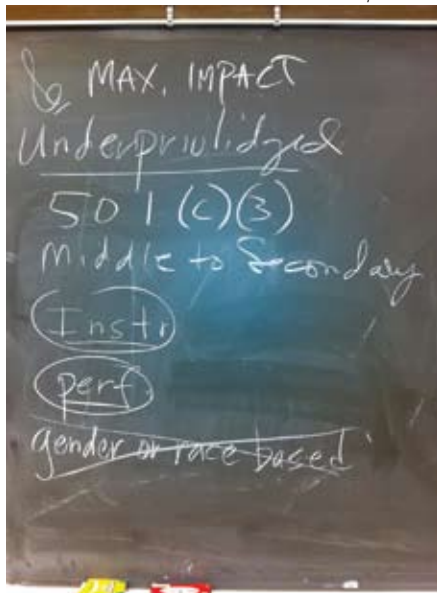 MAX. IMPACT
Underprivilidged
501(c)(3)
Middle to Secondary
Instr
perf.
gender or race based